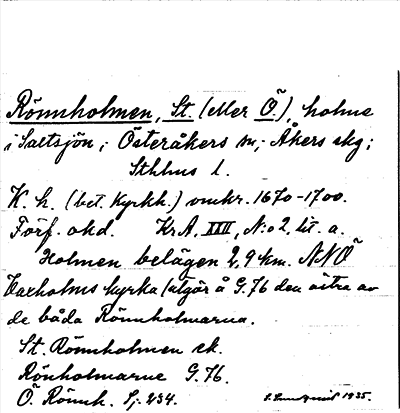 Rönnholmen, St. (eller Ö.), holme
i Saltsjön; Österåkers sn; Åkers skg;
Sthlms l.
K. h. (bet. Kyrkh.) omkr. 1670-1700.
Förf. okd. KrA, XXII, N:o 2 lit. a.
Holmen belägen 2,9 km. NNÖ
Vaxholms kyrka (utgör å G. 76 den östra av
de båda Rönnholmarna.
St. Rönnholmen ek.
Rönholmarne G. 76.
Ö. Rönnh. Sj. 234.
1935.